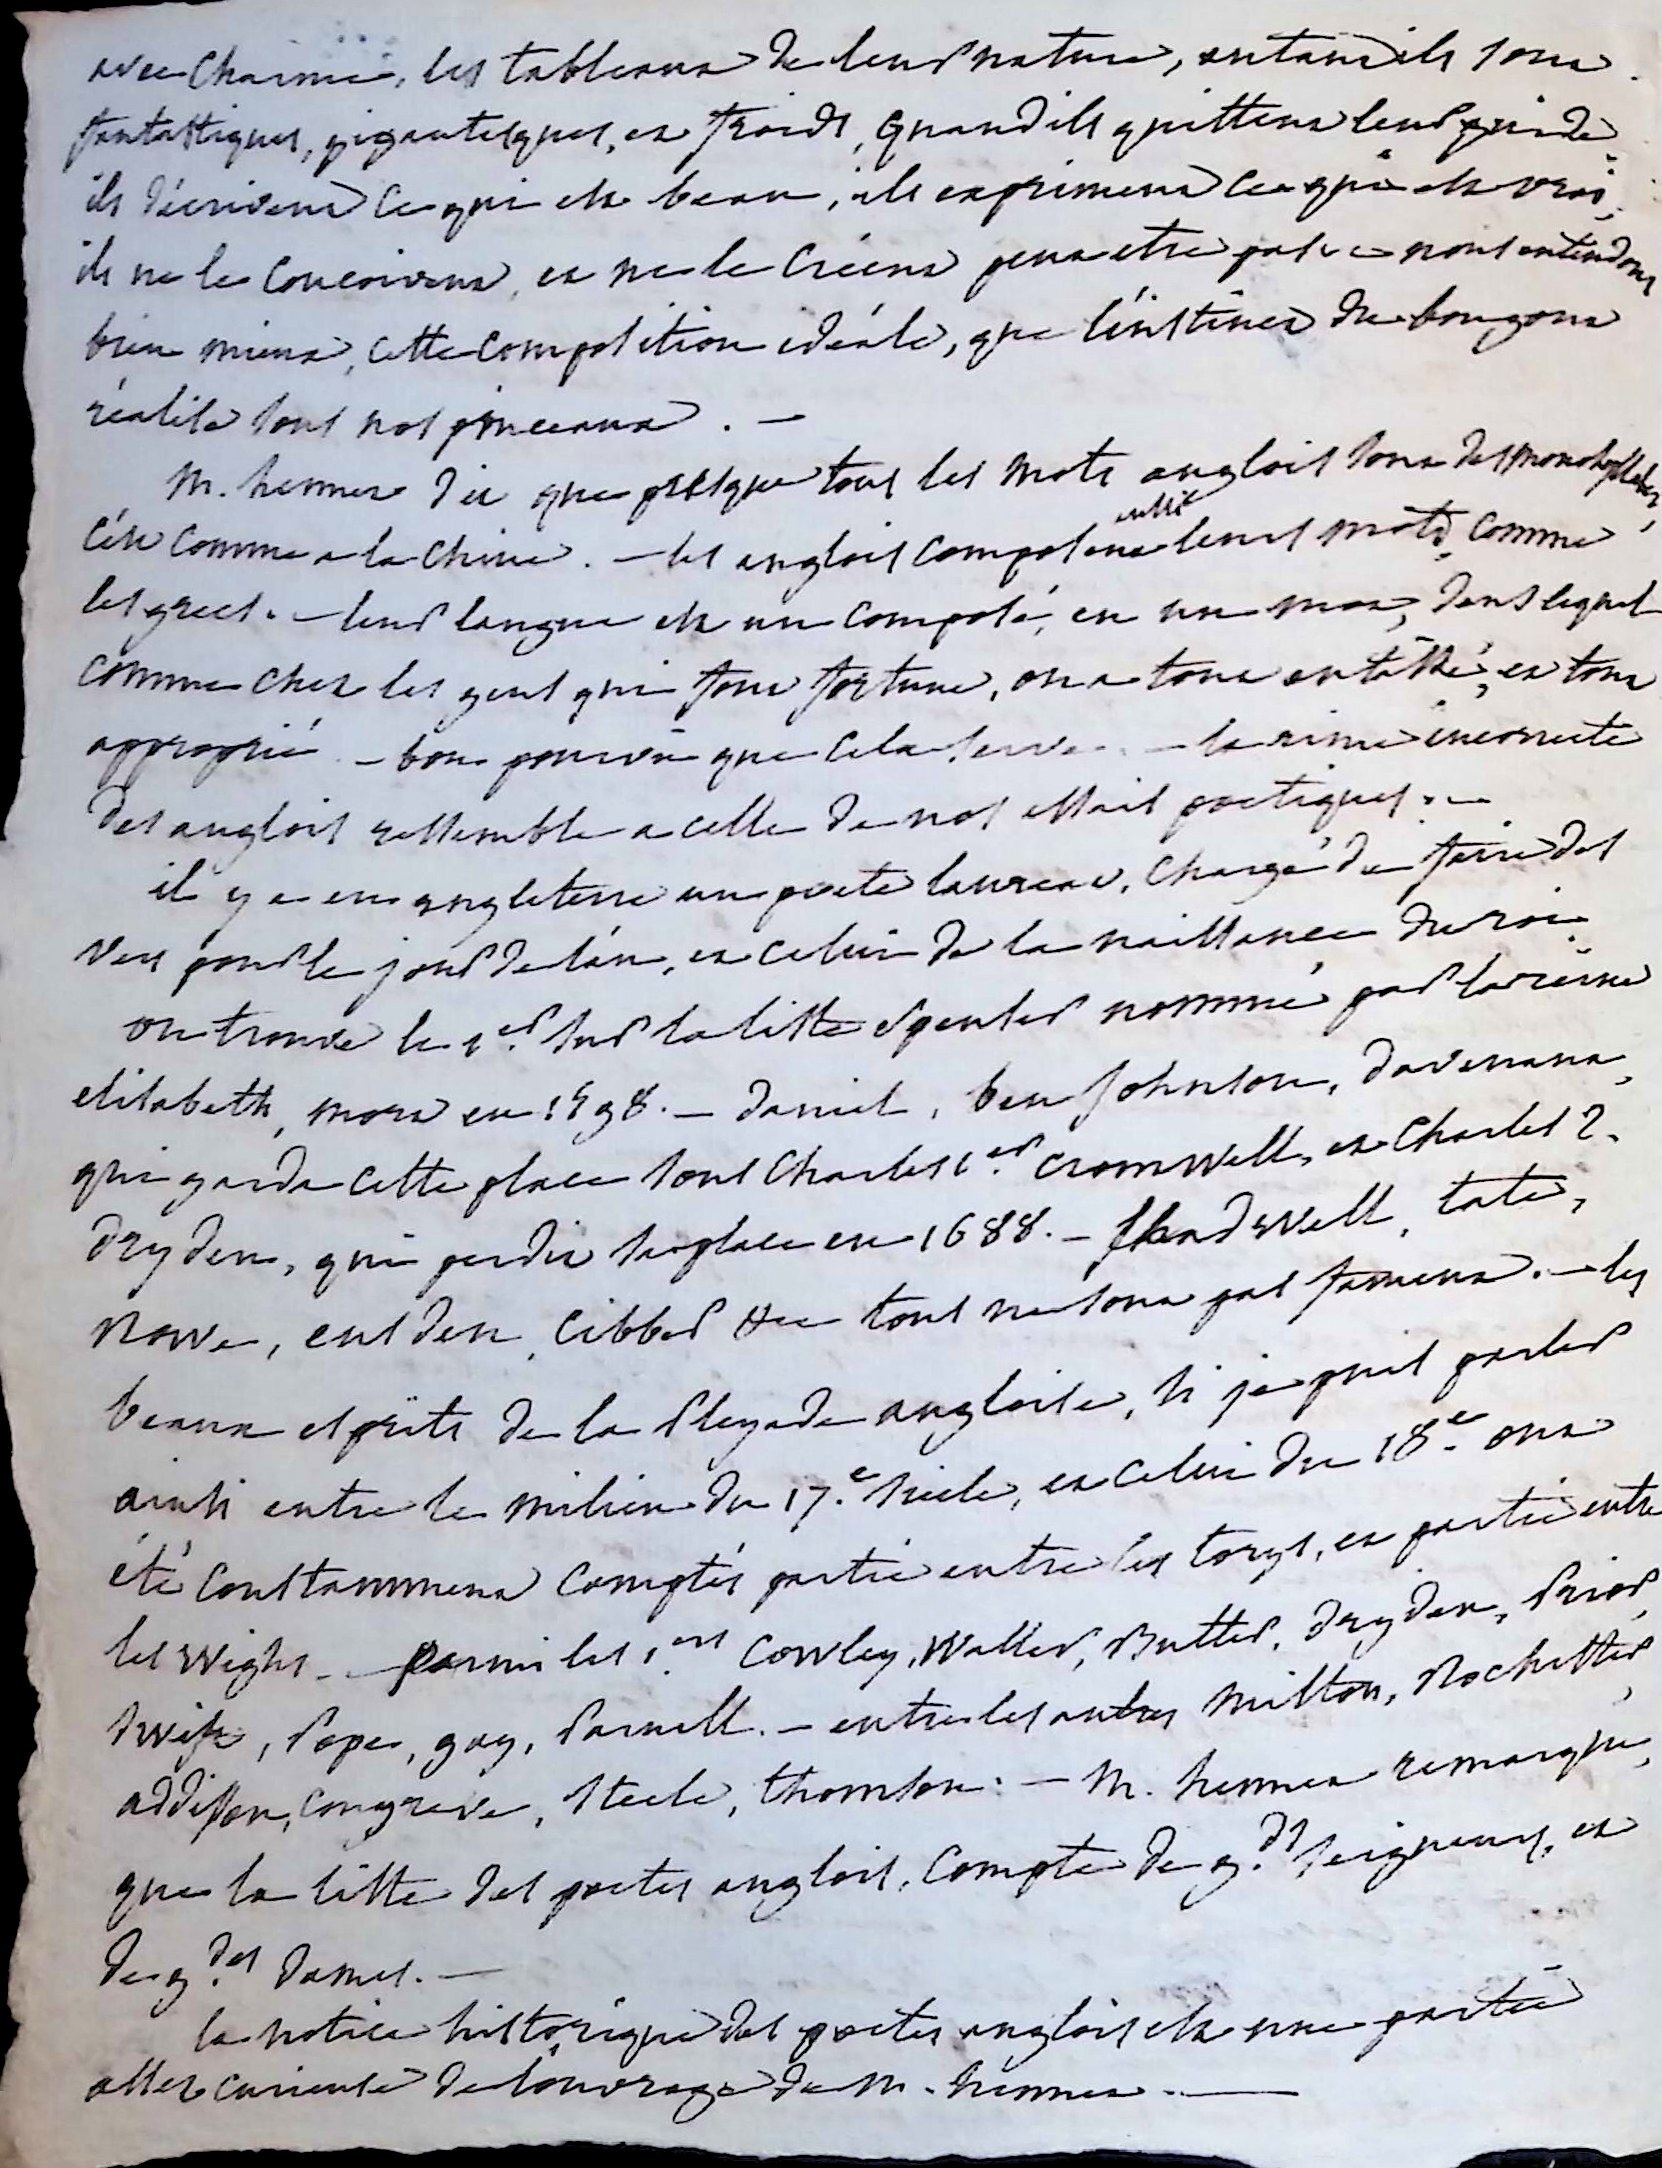 avec charme, les tableaux de leur nature, autant ils sont
fantastiques, gigantesques, et froids, quand ils quittent leur guide
ils décrivent ce qui est beau, ils expriment ce qui est vrai,
ils ne le concoivent, et ne le créent peut etre pas. - nous entendons
bien mieux, cette composition idéale, que l'instinct du bon gout
réalise sous nos pinceaux. -
M. hennet dit que presque tous les mots anglois sont des monosyllabes,
c'est comme a la chine. - les anglois composent aussi leurs mots, comme
les grecs. - leur langue est un composé, en un mot, dans lequel
comme chez les gens qui font fortune, on a tout entassé, et tout
approprié - bon pourvu que cela serve. - la rime incorrecte
des anglois ressemble a celle de nos essais poetiques. -
il y a en angleterre un poete laureat, chargé de faire des
vers pour le jour de l'an, et celui de la naissance du roi.
on trouve le 1.er sur la liste spenser nommé par la reine
elisabeth, mort en 1598. - daniel, ben johnson, davenant,
qui garda cette place sous Charles 1.er cromwell, et Charles 2.
dryden, qui perdit sa place en 1688. - shadwell, tate,
Rowe, eusden, cibber &c tous ne sont pas fameux. - les
beaux esprits de la Pleyade angloise, si je puis parler
ainsi entre le milieu du 17.e siecle, et celui du 18.e ont
été constamment comptés partie entre les torys, et partie entre
les wighs. - parmi les 1.ers Cowley, Waller, Butler, dryden, Prior,
swift, Pope, gay, Parnell. - entre les autres Milton, Rochester,
addisson, congreve, steele, thomson. - M. hennet remarque,
que la liste des poetes anglois, compte de g.ds seigneurs, et
de g.des dames. -
la notice historique des poetes anglois est une partie
assez curieuse de l'ouvrage de M. hennet. -